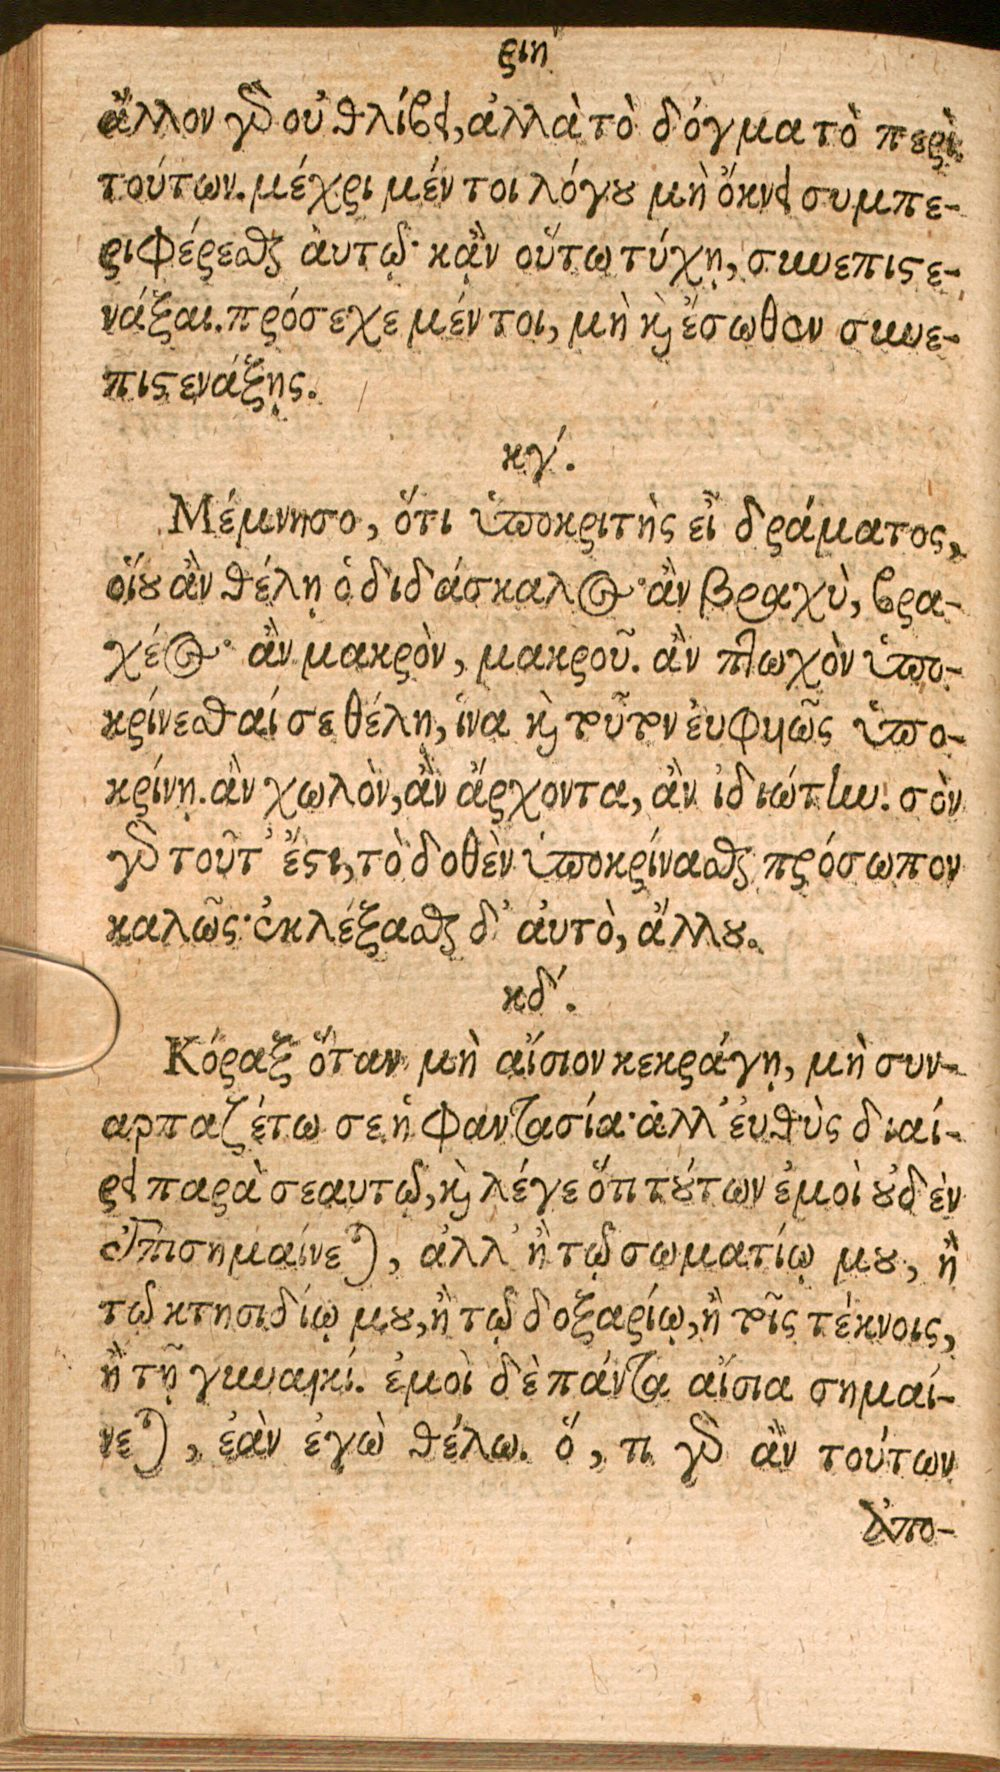 ριη
ἄλλον γὰρ οὐ θλίβει, ἀλλὰ τὸ δόγμα τὸ περὶ
τούτων. μέχρι μέν τοι λόγου μὴ ὄκνει συμπε-
ριφέρεσθαι ἀυτῷ· κἂν οὕτω τύχῃ, συνεπιστε-
νάξαι. πρόσεχε μέν τοι, μὴ καὶ ἔσωθεν συνε-
πιστενάξῃς.
κγ΄.
Μέμνησο, ὅτι ὑποκριτὴς εἶ δράματος,
οἵου ἂν θέλῃ ὁ διδάσκαλος· ἂν βραχὺ, βρα-
χέος· ἂν μακρὸν, μακροῦ. ἂν πτωχὸν ὑπο-
κρίνεσθαί σε θέλη, ἵνα καὶ τοῦτον ἐυφυῶς ὑπο-
κρίνῃ. ἂν χωλὸν, ἂν ἄρχοντα, ἂν ἰδιώτην. σὸν
γὰρ τοῦτ' ἔστι, τὸ δοθὲν ὑποκρίνασθαι πρόσωπον
καλῶς· ἐκλέξασθαι δ' ἀυτὸ, ἄλλου.
κδ΄.
Κόραξ ὅταν μὴ αἴσιον κεκράγῃ, μὴ συν-
αρπαζέτω σε ἡ φαντασία· ἀλλ' ἐυθὺς διαί-
ρει παρὰ σεαυτῷ, καὶ λέγε ὅτι τούτων ἐμοὶ οὐδὲν
ἐπισημαίνεται, ἀλλ' ἢ τῷ σωματίῳ μου, ἢ
τῷ κτησιδίῳ μου, ἢ τῷ δοξαρίῳ, ἢ τοῖς τέκνοις,
ἢ τῇ γυναικί. ἐμοὶ δὲ πάντα αἴσια σημαί-
νεται, ἐὰν ἐγὼ θέλω. ὅ, τι γὰρ ἂν τούτων
ἀπο-